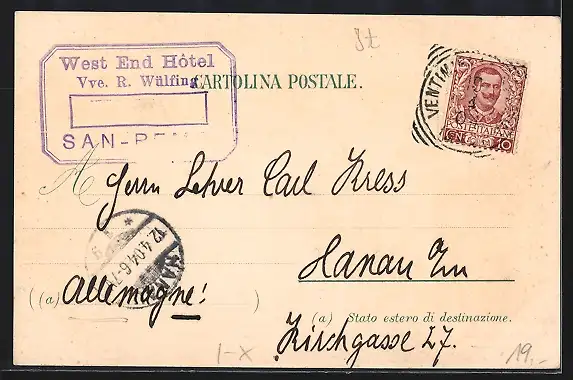 St
West End Hôtel
Vve. R. Wülfing
SAN-REMO
CARTOLINA POSTALE.
VENTIM
POSTE ITALIANE
10
A Herrn Lehrer Carl Kress
Hanau
12.4.04.6-7
(a) Allemagne! )
(a) Stato estero di destinazione.
Kirchgasse 27.
1-X
19,-